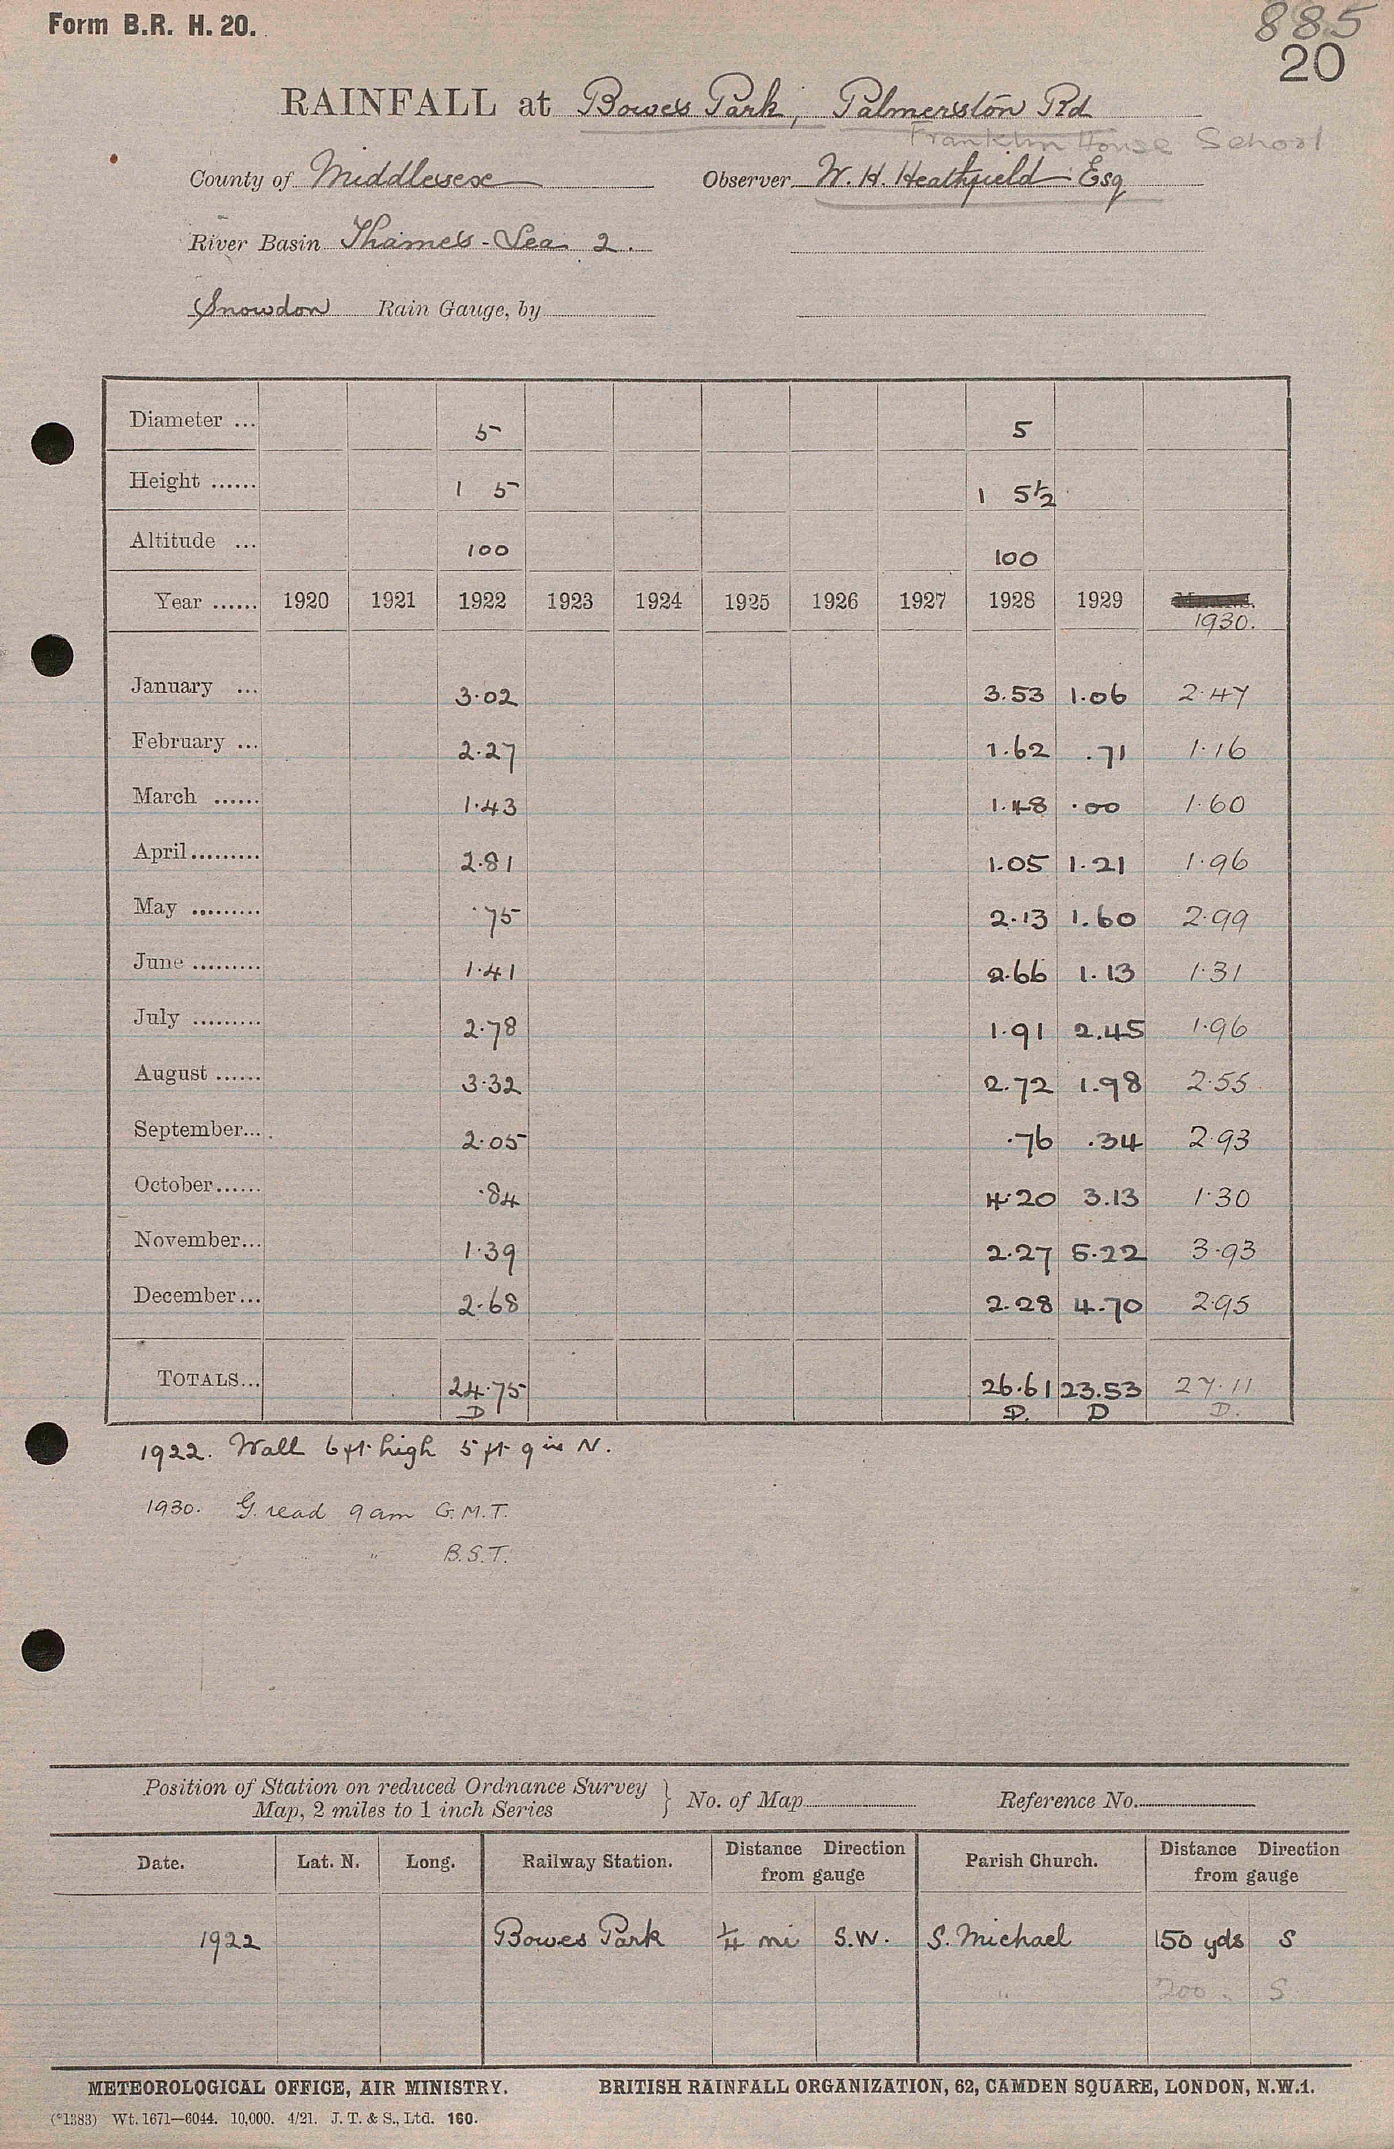 Form B.R. H. 20.
885
20
RAINFALL at Bowes Park, Palmerston Rd
Franklin House School
County of Middlesex Observer W. H. Heathfield Esq
River Basin Thames - Lea 2.
Snowdon Rain Gauge, by
Diameter ... 5 5
Height ...... 1 5 1 5½
Altitude ... 100 100
Year ...... 1920 1921 1922 1923 1924 1925 1926 1927 1928 1929 1930.
January ... 3.02 3.53 1.06 2.47
February ... 2.27 1.62 .71 1.16
March ...... 1.43 1.48 .00 1.60
April......... 2.81 1.05 1.21 1.96
May ......... .75 2.13 1.60 2.99
June ......... 1.41 2.66 1.13 1.31
July ......... 2.78 1.91 2.45 1.96
August ...... 3.32 2.72 1.98 2.55
September... 2.05 .76 .34 2.93
October...... .84 4.20 3.13 1.30
November... 1.39 2.27 5.22 3.93
December... 2.68 2.28 4.70 2.95
TOTALS... 24.75 26.61 23.53 27.11
D D. D D.
1922. Wall 6 ft. high 5 ft 9 in N.
1930. G. read 9 am G.M.T.
" B.S.T.
Position of Station on reduced Ordnance Survey
Map, 2 miles to 1 inch Series } No. of Map Reference No.
Date. Lat. N. Long. Railway Station. Distance Direction from gauge Parish Church. Distance Direction from gauge
1922 Bowes Park ¼ mi S.W. S. Michael 150 yds S
" 200 " S
METEOROLOGICAL OFFICE, AIR MINISTRY. BRITISH RAINFALL ORGANIZATION, 62, CAMDEN SQUARE, LONDON, N.W.1.
(*1383) Wt. 1671—6044. 10,000. 4/21. J. T. & S., Ltd. 160.